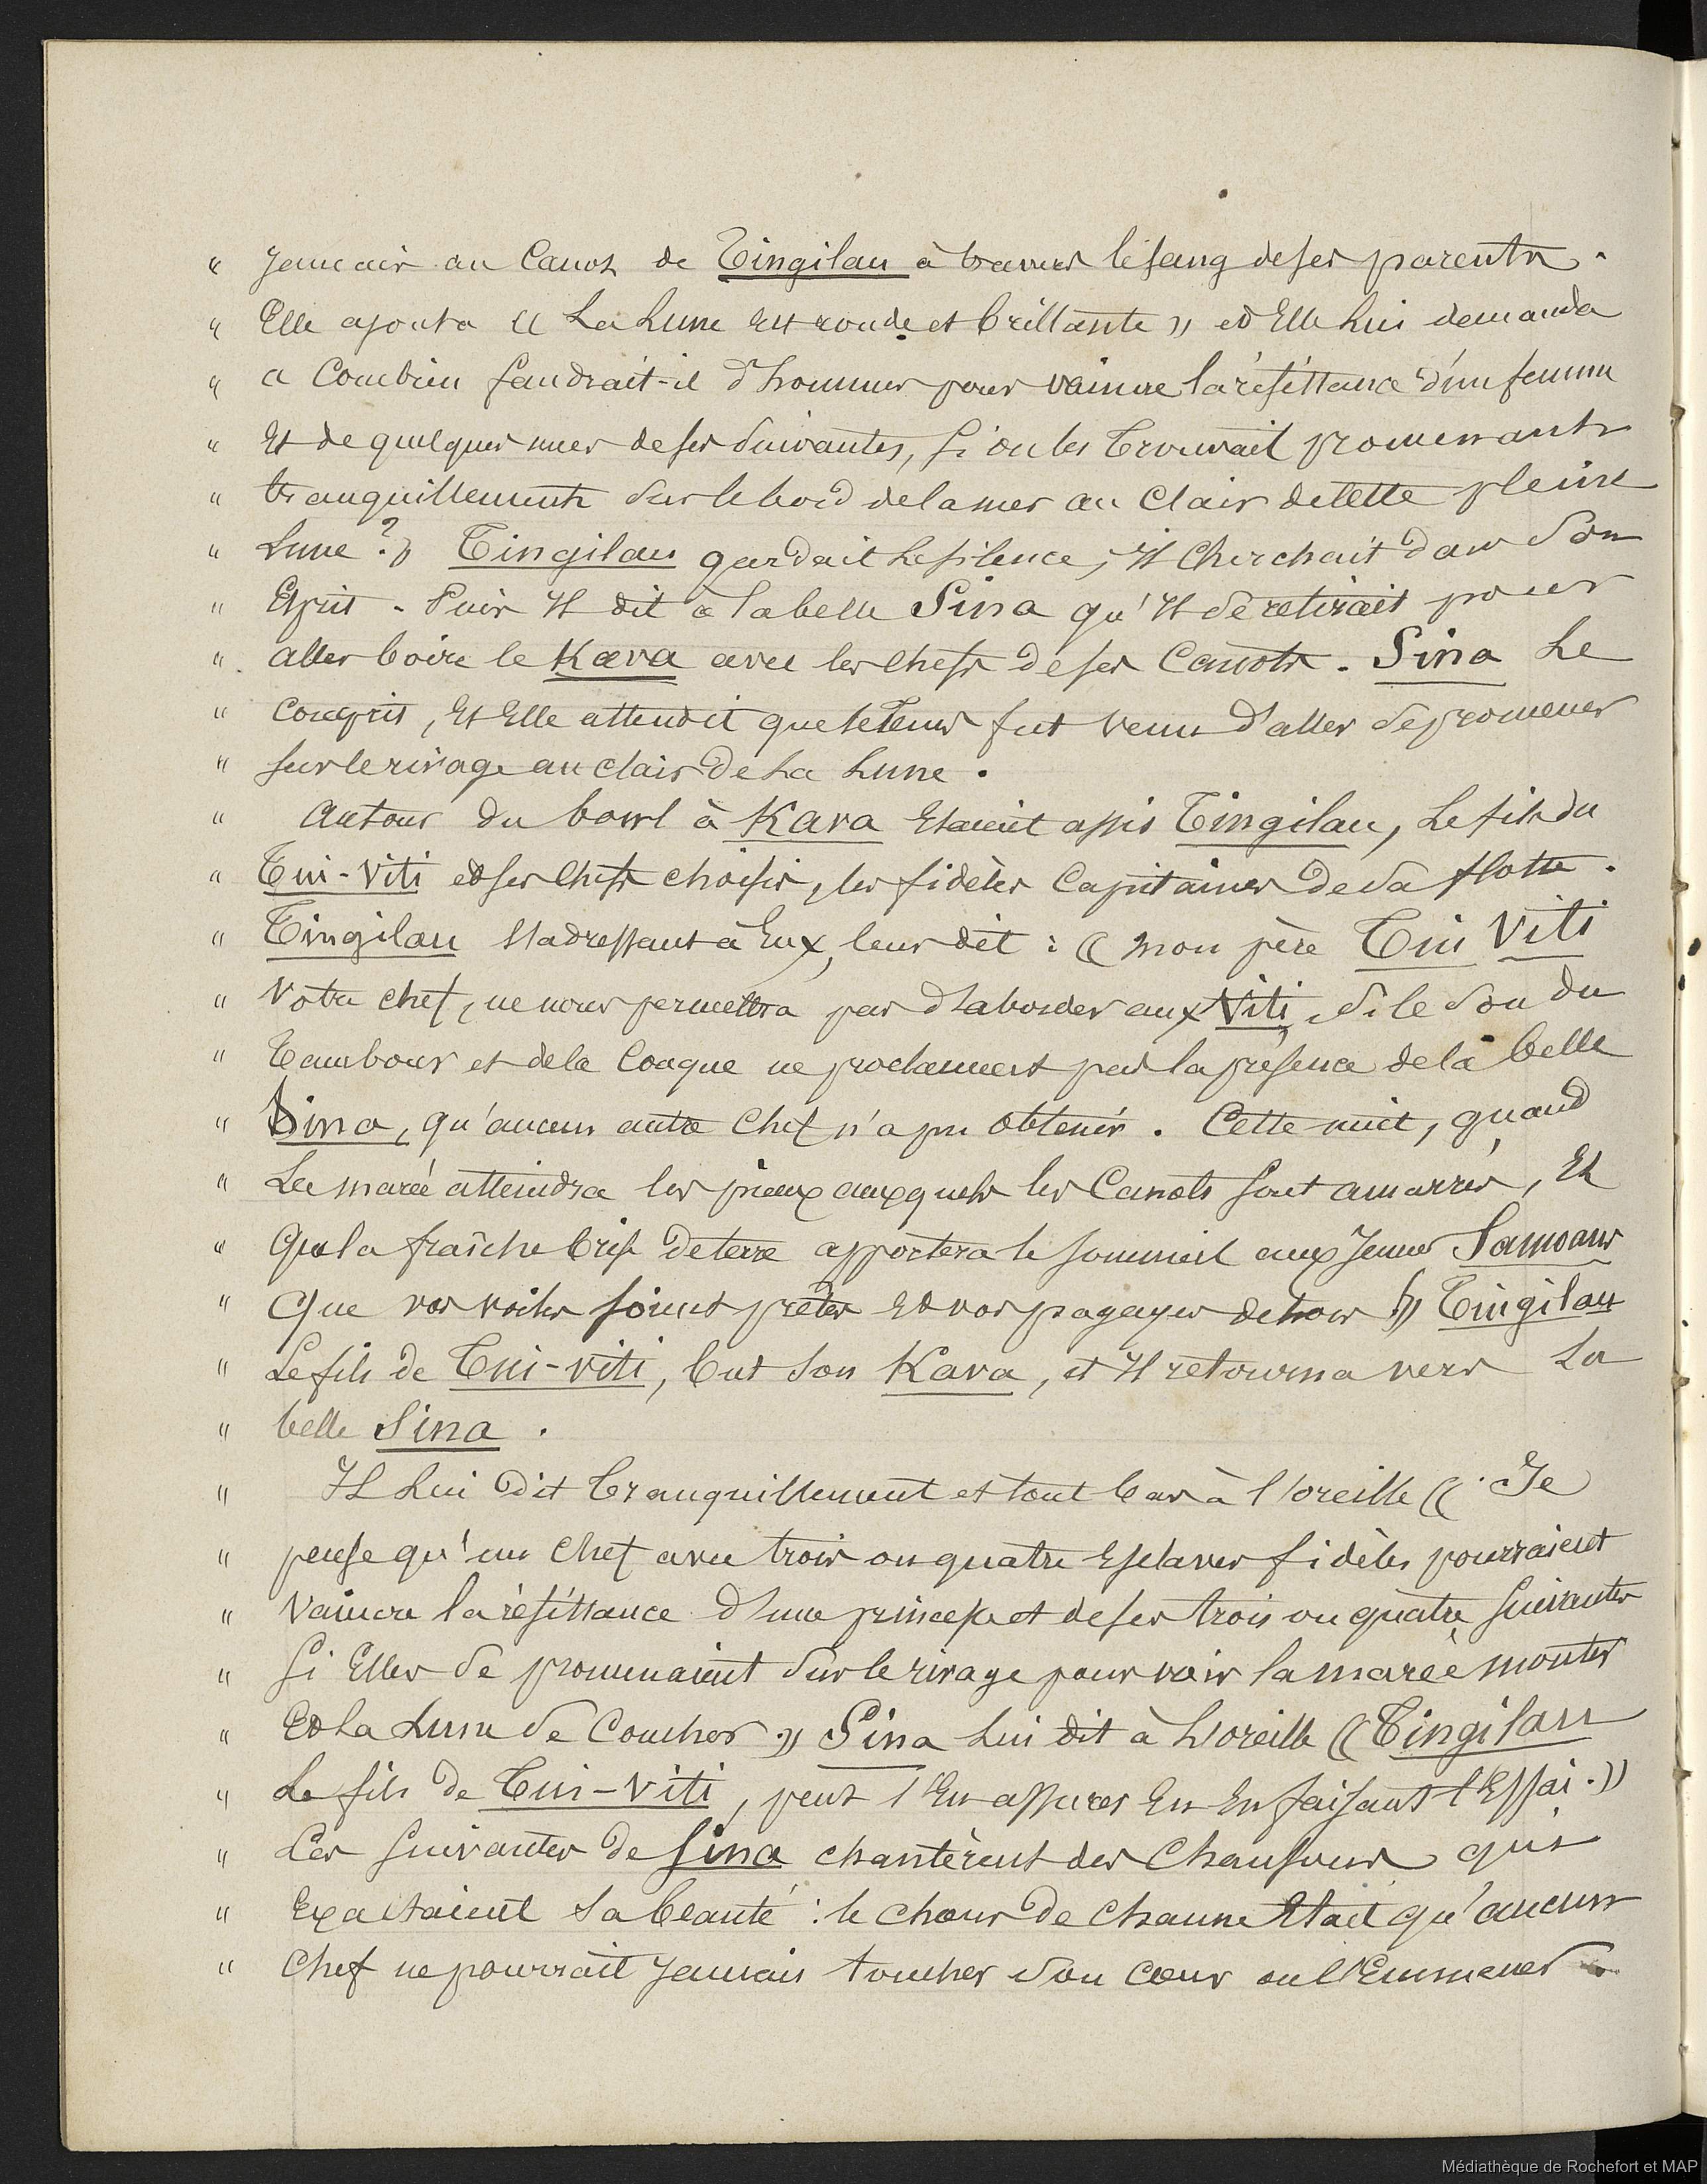 " Jamais au Canot de Tingilau à travers le sang de ses parents.
" Elle ajouta « La Lune Est ronde et brillante » et Elle Lui demanda
" a Combien faudrait-il d'hommes pour vaincre la résistance d'un femme
" Et de quelques unes de ses Suivantes, Si on les Trouvait promenants
" tranquillement Sur le bord de la mer au Clair de Cette pleine
" Lune ?» Tingilau gardait Le silence, Il Cherchait dans Son
" Esprit. Puis Il dit à la belle Sina qu'Il Se retirait pour
" aller boire le Kava avec les chefs de ses Canots. Sina Le
" Comprit, Et Elle attendit que le tems fut venu d'aller Se promener
" Sur le rivage au clair De La Lune.
" Autour du bowl à Kava Etaient assis Tingilau, Le fils du
" Tui-Viti et ses Chefs choisis, les fidèles Capitaines De Sa flotte.
" Tingilau S'adressant à Eux, leur dit : « mon père Tui Viti
" Votre chef, ne nous permettra pas d'aborder aux Viti, Si le Son du
" Tambour et de la Conque ne proclament pas la présence de la belle
" Sina, qu'aucun autre Chef n'a pu obtenir. Cette nuit, quand
" La marée atteindra les pieux auxquels les Canots sont amarrés, Et
" Que la fraîche brise de terre apportera le sommeil aux Jeunes Samoans
" Que vos voiles soient prêtes Et vos pagayes dehors !» Tingilau
" Le fils de Tui-Viti, but Son Kava, et Il retourna vers La
" belle Sina.
" Il Lui Dit Tranquillement et tout bas à l'oreille « Je
" pense qu'un Chef avec trois ou quatre Esclaves fidèles pourraient
" Vaincre la résistance d'une princesse et de ses trois ou quatre Suivantes
" Si Elles Se promenaient Sur le rivage pour voir la marée monter
" Et La Lune Se Coucher » Sina Lui dit à L'oreille « Tingilau
" Le fils de Tui-Viti, peut S'En assurer En En faisant l'Essai. »
" Les Suivantes De Sina chantèrent des Chansons qui
" Exaltaient Sa beauté : le chœur De Chaune Etait qu'aucun
" Chef ne pourrait Jamais toucher Son Cœur ou l'Emmener
Médiathèque de Rochefort et MAP